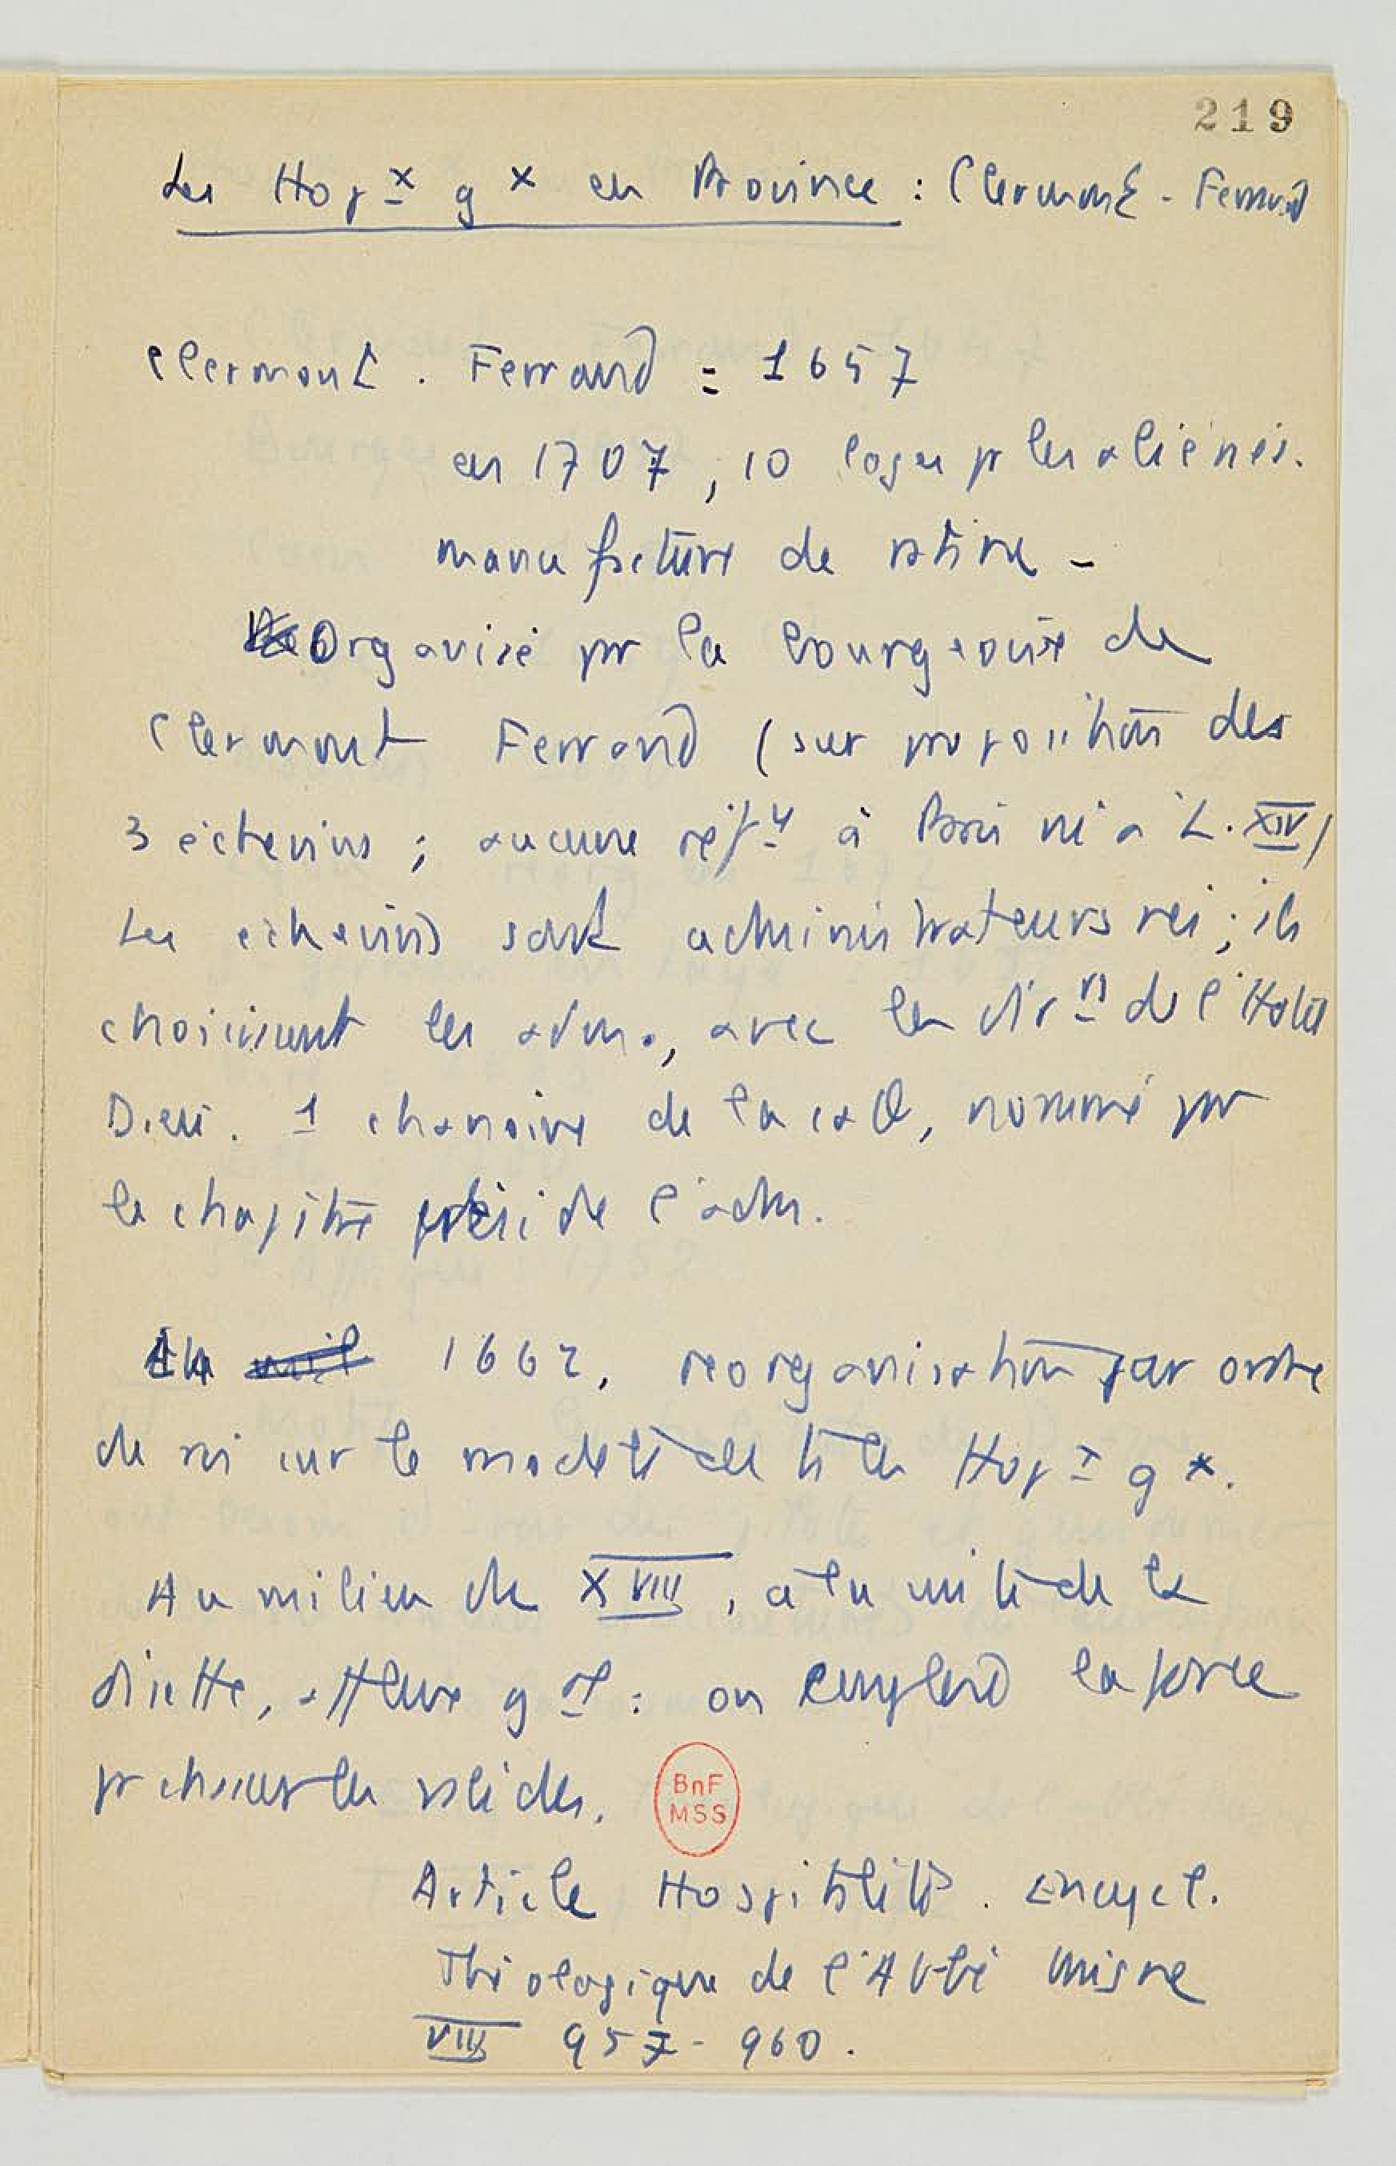 219
Les Hopx gx en Province : Clermont-Ferrand
Clermont. Ferrand = 1657
en 1707, 10 loges pr les aliénés.
manufacture de ratine -
Organisé pr la bourgeoisie de
Clermont Ferrand (sur proposition des
3 échevins ; aucune à Paris ni à L. XIV)
Les échevins sont administrateurs nés ; ils
choisissent les adm., avec les dirrs de l'Hotel
Dieu. 1 chanoine de la cath, nommé par
le chapitre préside l'adm.
En 1662, réorganisation par ordre
du roi sur le modèle de ts les Hopx gx.
Au milieu du XVIII, à la suite de la
disette, affleure gal : on employa la force
pr chasser les valides.
BnF
MSS
Article Hospitalité. Encycl.
Théologique de l'Abbé Migne
VIII 957-960.